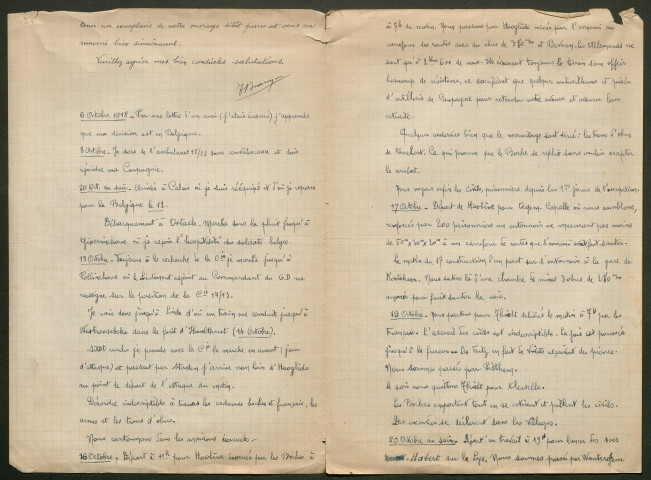 tenir un exemplaire de votre ouvrage sitôt paru et vous en
remercie bien sincèrement.
Veuillez agréer mes bien cordiales salutations.
6 Octobre 1918 - Par une lettre d'un ami (j'étais évacué) j'apprends
que ma division est en Belgique.
8 Octobre - Je sors de l'ambulance 15/23 sans convalescence et vais
rejoindre ma Compagnie.
10 Oct. au soir - Arrivée à Calais où je suis rééquipé et d'où je repars
pour la Belgique le 12.
Débarquement à Ostacle. Marche sous la pluie jusqu'à
où je reçois l'hospitalité des soldats belges.
13 Octobre - Toujours à la recherche de la Cie je marche jusqu'à
Pollinchove où le Lieutenant adjoint au Commandant du G.D me
renseigne sur la position de la Cie 19/13.
Je vais donc jusqu'à Linde d'où un train me conduit jusqu'à
Westroosebeke dans la forêt d'Houthulst (14 Octobre).
Sitôt rendu je prends avec la Cie la marche en avant (jour
d'attaque) et passant par Staden j'arrive non loin d'Hooglede
au point de départ de l'attaque du matin.
Désordre indescriptible à travers les cadavres boches et français, les
armes et les trous d'obus.
Nous cantonnons dans les maisons
16 Octobre - Départ à 11h pour Hooglède évacuée par les Boches à
à 7h du matin. Nous passons par Hooglède minée par l'ennemi au
carrefour des routes avec des obus de 380 m/m et Beveren. Les Allemands ne
sont qu'à 2 Km 600 de nous. Ils évacuent toujours le terrain sans offrir
beaucoup de résistance, ne sacrifiant que quelques mitrailleuses et pièces
d'artillerie de Campagne pour retarder notre avance et assurer leur
retraite.
Quelques cadavres bien que le marmitage soit serré : les trous d'obus
se touchent. Ce qui prouve que le Boche se replit sans vouloir accepter
le combat.
Nous voyons enfin les civils, prisonniers depuis les 1ers jours de l'occupation.
17 Octobre - Départ de Hooglède pour Gegny Capelle où nous comblons,
renforcés par 200 prisonniers un entonnoir ne mesurant pas moins
de 50m x 30m x 20m à un carrefour de routes que l'ennemi avait fait sauter.
Le matin du 17 construction d'un pont sur l'entonnoir à la gare de
Nous retirons d'une chambre de mines 3 obus de 280 m/m
amorcés pour faire sauter la voie.
19 Octobre - Nous partons pour Thielt délivré le matin à 7h par les
français. L'accueil des civils est indescriptible. La joie est poussée
jusqu'à la fureur.
Nous sommes passés par Pitthem.
Le soir nous quittons Thielt pour Aerseele.
Les Boches emportent tout en se retirant et pillent les civils.
Des incendies se déclarent dans les villages.
20 Octobre au soir - Départ au travail à 19h pour lancer des sacs
Habert sur la Lys. Nous sommes passés par Wontergem